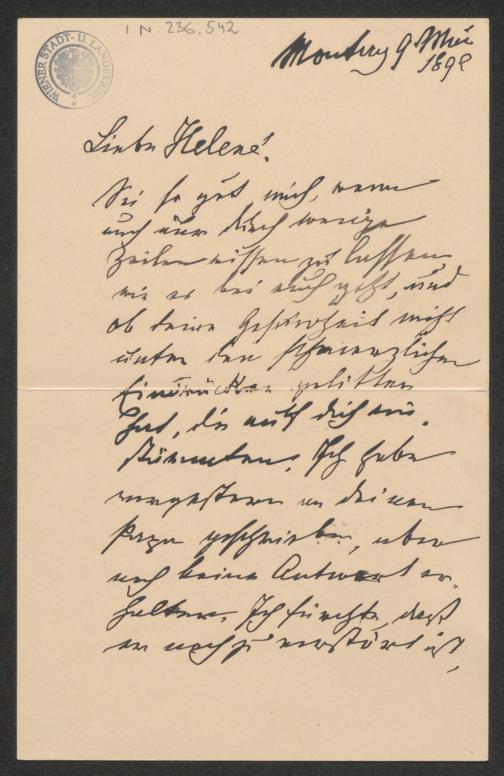 I.N. 236.542
WIENER STADT- U. LANDESBIBL.
Montag 9 Mai
189
Liebe Helene!
Sei so gut mich, wenn
auch nur durch wenige
Zeilen wissen zu lassen
wie es bei euch geht, und
ob deine Gesundheit nicht
unter den schmerzlichen
Eindrücken gelitten
hat, die auf dich ein-
stürmten. Ich habe
vorgestern an deinen
Papa geschrieben, aber
noch keine Antwort er-
halten. Ich fürchte, dass
er noch zu verstört ist,